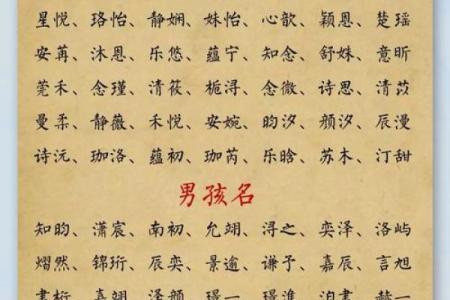 星悦、珞怡、静娴、姝怡、心歆、颖恩、楚瑶
安苒、沐恩、乐悠、蕴宁、知念、舒妹、意昕
莞禾、念瑾、清筱、栀浔、念微、诗思、清苡
曼柔、静薇、禾悦、安婉、昀汐、颜汐、辰漫
诗沅、珈洛、蕴初、珈芮、乐晗、苏本、汀甜
男孩名
知昀、潇宸、南初、允翊、浔之、奕泽、洛屿
熠然、锦珩、辰奕、景逾、谦予、嘉辰、言旭
書桁、嘉翊、泽颜、璟一、璟進、泊書、赫一